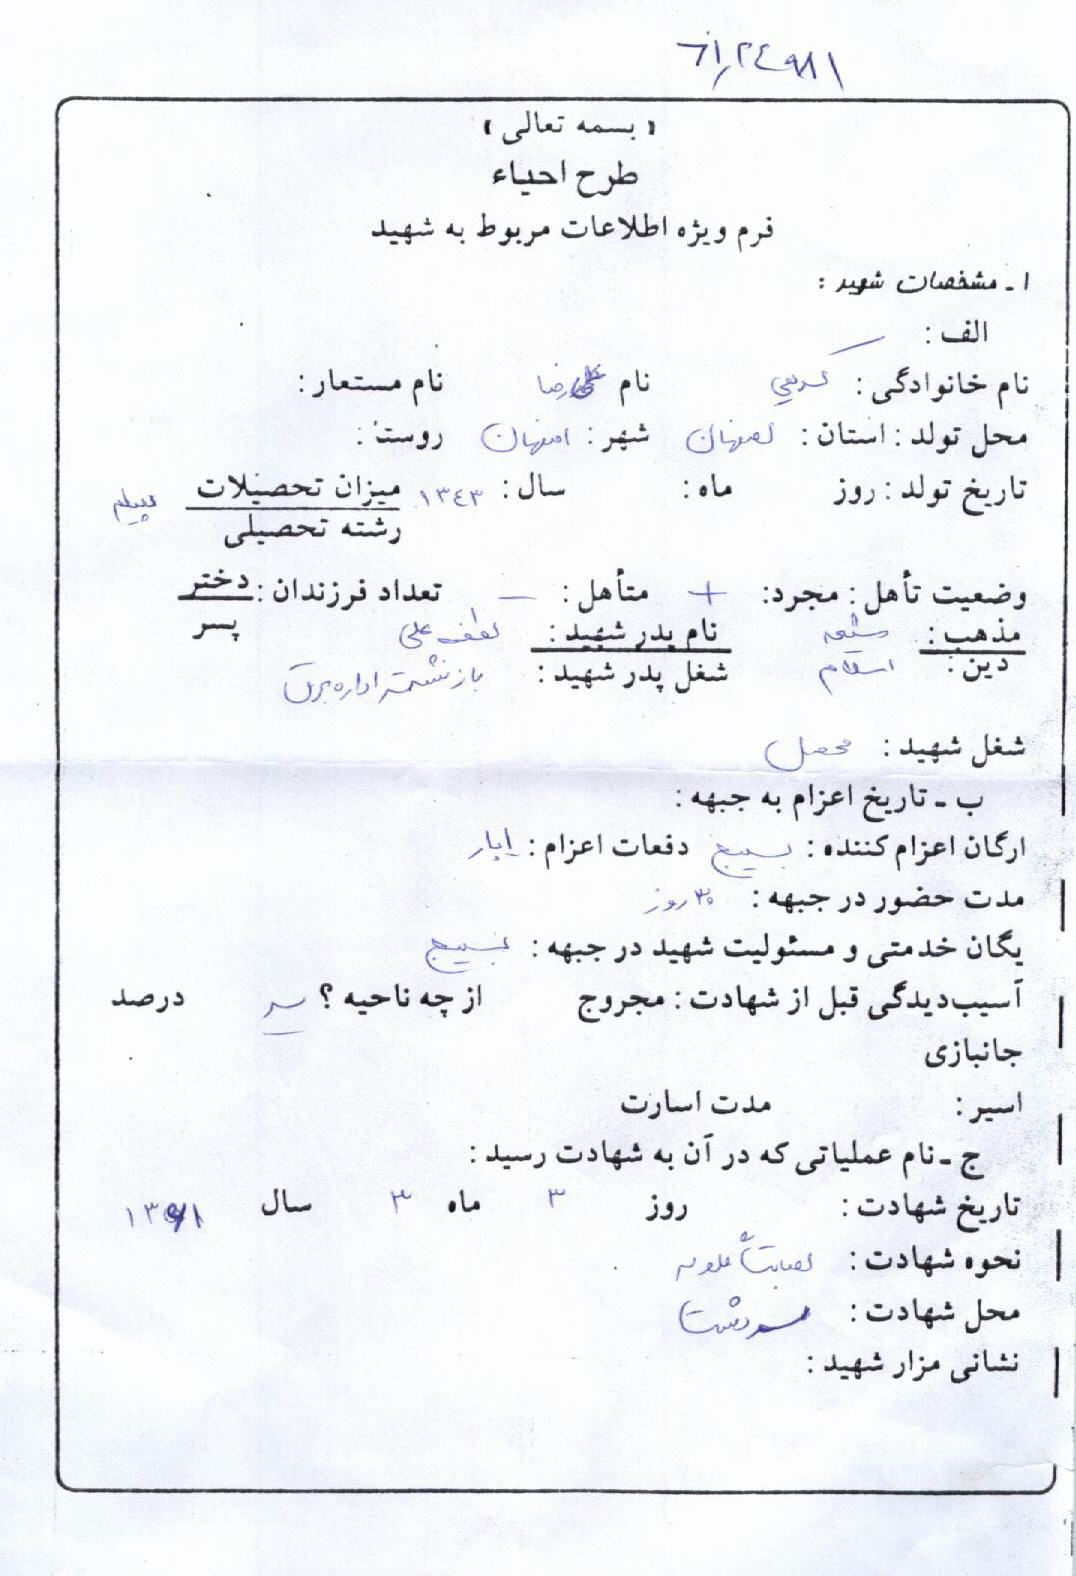 « بسمه تعالی »
طرح احیاء
فرم ویژه اطلاعات مربوط به شهید
۱ ـ مشخصات شهید :
الف :
نام خانوادگی : کریمی نام علیرضا نام مستعار :
محل تولد : استان : اصفهان شهر : اصفهان روستا :
تاریخ تولد : روز ماه : سال : ۱۳٤۳ میزان تحصیلات دیپلم
رشته تحصیلی
وضعیت تأهل : مجرد : + متأهل : – تعداد فرزندان : دختر
پسر
مذهب : شیعه نام پدر شهید : لطف علی
دین : اسلام شغل پدر شهید : بازنشسته اداره برق
شغل شهید : محصل
ب ـ تاریخ اعزام به جبهه :
ارگان اعزام کننده : بسیج دفعات اعزام : ۱بار
مدت حضور در جبهه : ۳۰ روز
یگان خدمتی و مسئولیت شهید در جبهه : بسیج
آسیب‌دیدگی قبل از شهادت : مجروح از چه ناحیه ؟ سر درصد
جانبازی
اسیر : مدت اسارت
ج ـ نام عملیاتی که در آن به شهادت رسید :
تاریخ شهادت : روز ۳ ماه ۳ سال ۱۳۶۱
نحوه شهادت : اصابت گلوله
محل شهادت : سردشت
نشانی مزار شهید :